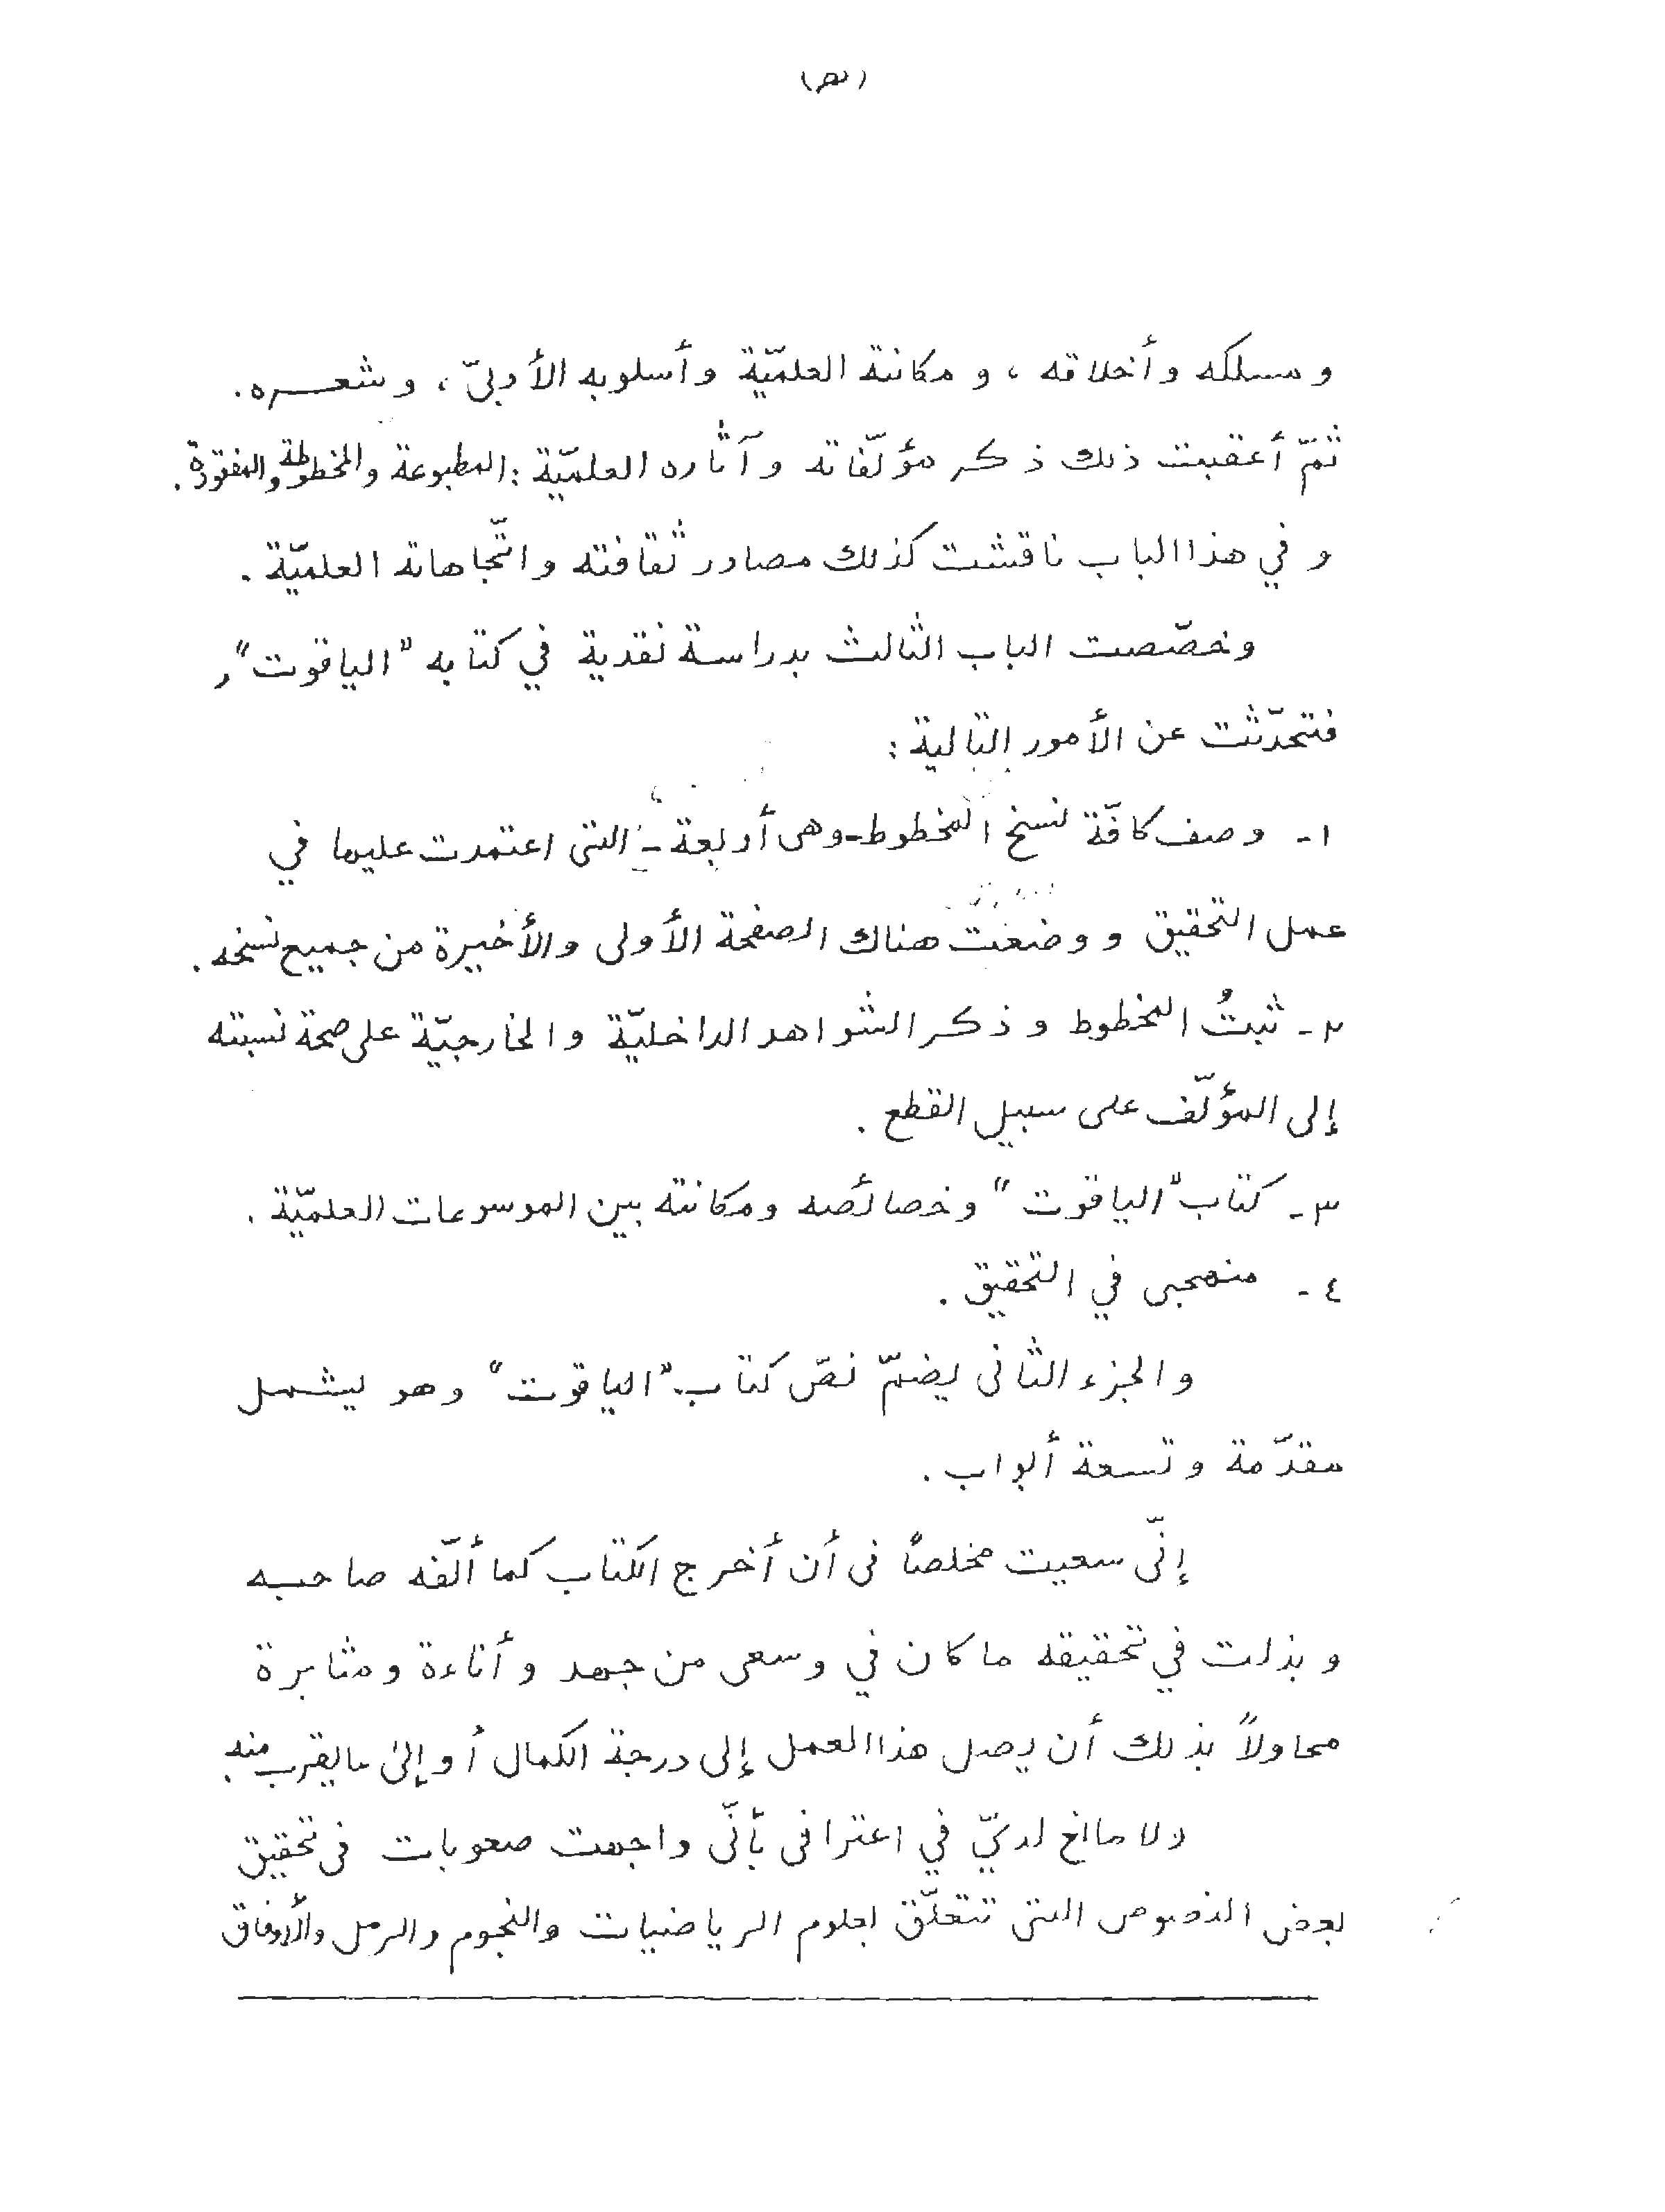 (ص)
و مسلكه وأخلاقه ، و مكانته العلميّة وأسلوبه الأدبيّ ، وشعره .
ثمّ أعقبت ذلك ذكر مؤلّفاته وآثاره العلميّة : المطبوعة والمخطوطة والمفقودة .
و في هذا الباب ناقشت كذلك مصادر ثقافته واتّجاهاته العلميّة .
وخصّصت الباب الثالث بدراسة نقدية في كتابه "الياقوت" ,
فتحدّثت عن الأمور التالية :
١- وصف كافّة نسخ المخطوط - وهى أربعة - التى اعتمدت عليها في
عمل التحقيق و وضعت هناك الصفحة الأولى والأخيرة من جميع نسخه .
٢- ثبتُ المخطوط و ذكر الشواهد الداخليّة والخارجيّة على صحة نسبته
إلى المؤلّف على سبيل القطع .
٣- كتاب "الياقوت" وخصائصه ومكانته بين الموسوعات العلميّة .
٤- منهجى في التحقيق .
والجزء الثانى يضمّ نصّ كتاب "الياقوت" وهو يشمل
مقدّمة وتسعة أبواب .
إنّى سعيت مخلصاً فى أن أخرج الكتاب كما ألّفه صاحبه
و بذلت في تحقيقه ما كان في وسعى من جهد وأناءة ومثابرة
محاولاً بذلك أن يصل هذا العمل إلى درجة الكمال أو إلى ما يقرب منه .
ولا مانع لديّ في اعترافى بأنّى واجهت صعوبات فى تحقيق
بعض النصوص التى تتعلّق بعلوم الرياضيات والنجوم والرمل والأوفاق